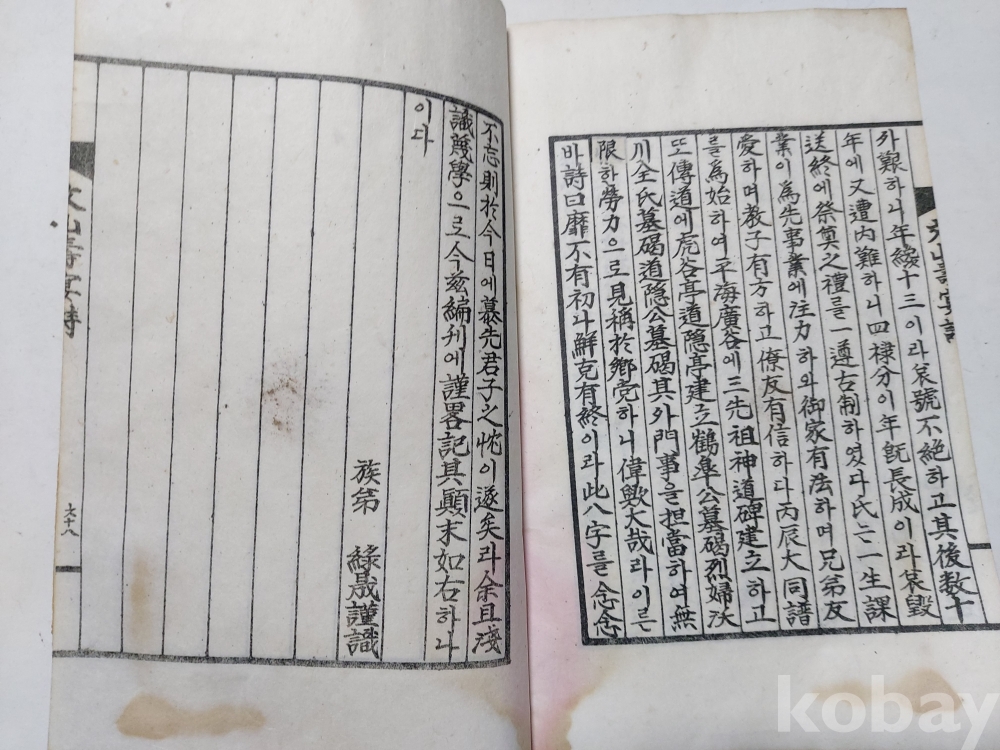 外艱하니年纔十三이라哀號不絶하고其後数十
年에又遭内難하니四棣分이年旣長成이라哀毁
送終에祭奠之禮를一遵古制하였다氏는一生課
業이為先事業에注力하와御家有法하며兄弟友
愛하며教子有方하고僚友有信하다丙辰大同譜
를為始하여平海廣谷에三先祖神道碑建立하고
또傳道에虎谷亭道隐亭建立鶴皐公墓碣烈婦沃
川全氏墓碣道隐公墓碣其外門事을担當하여無
限한勞力으로見稱於鄉党하니偉歟大哉라이른
바詩曰靡不有初나鮮克有終이라此八字를念念
不忘則於今日에慕先君子之忱이遂矣라余且淺
識蔑學으로今玆編刊에謹畧記其顚末如右하나
이다
族弟 緣晟謹識
文山壽宴詩
六十八
kobay